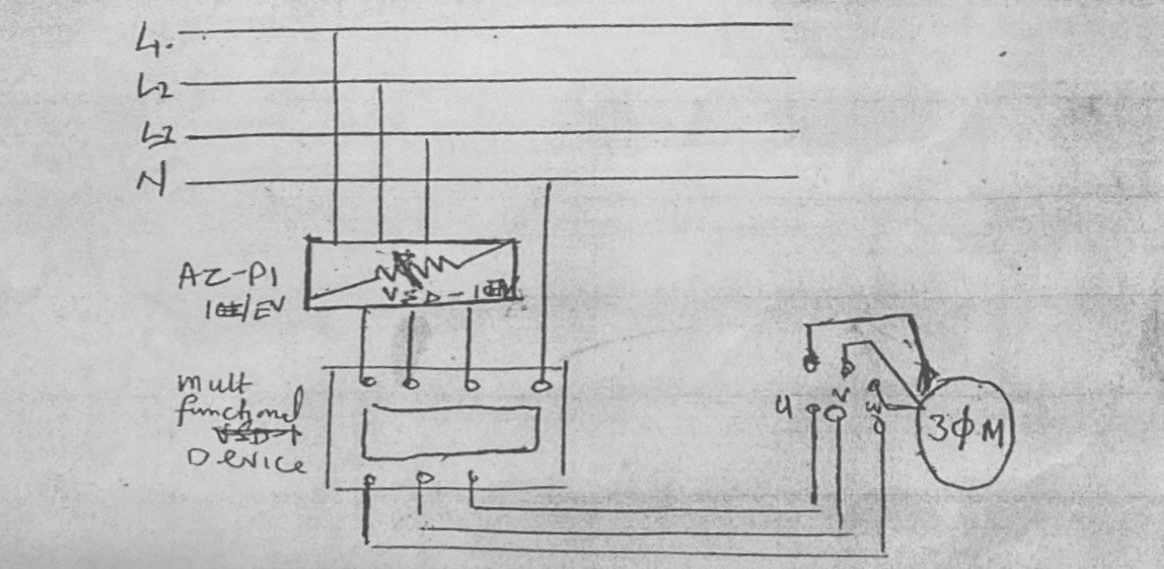 L1.
L2
L3
N
AZ-P1
VSD-1
/EV
mult
functional
VSD-1
Device
U
V
W
3ϕM